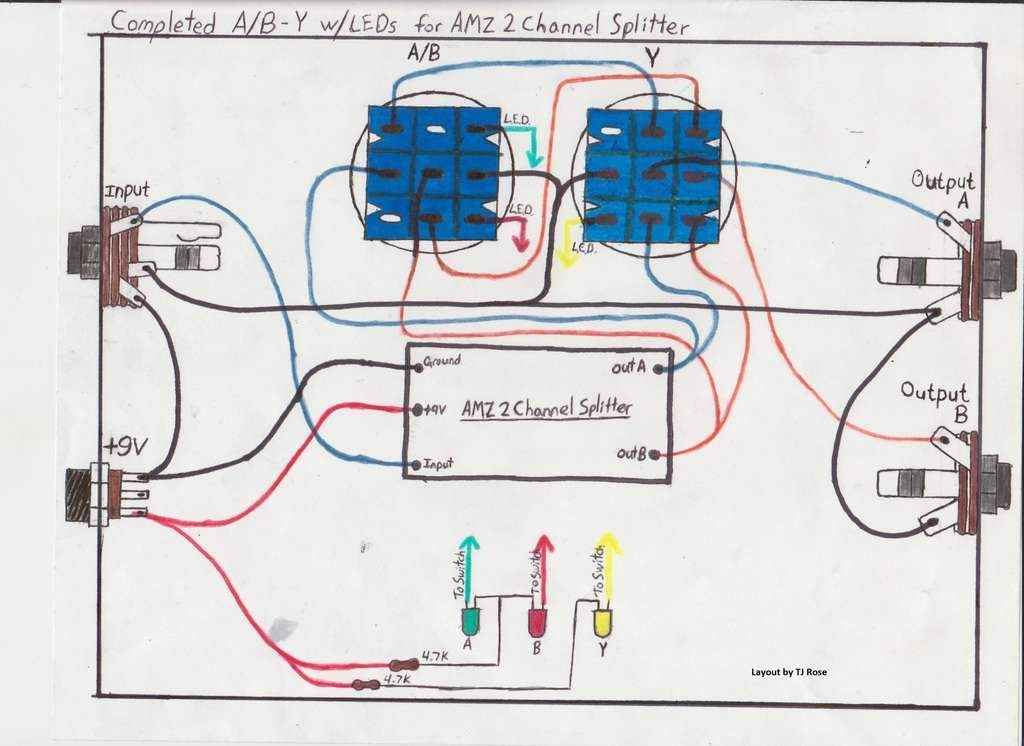 Completed A/B-Y w/LEDs for AMZ 2 Channel Splitter
A/B
Y
L.E.D.
Input
Output
A
L.E.D.
L.E.D.
Ground
outA
+9V
AMZ 2 Channel Splitter
Output
B
+9V
Input
outB
To Switch
To Switch
To Switch
A
B
Y
4.7K
4.7K
Layout by TJ Rose